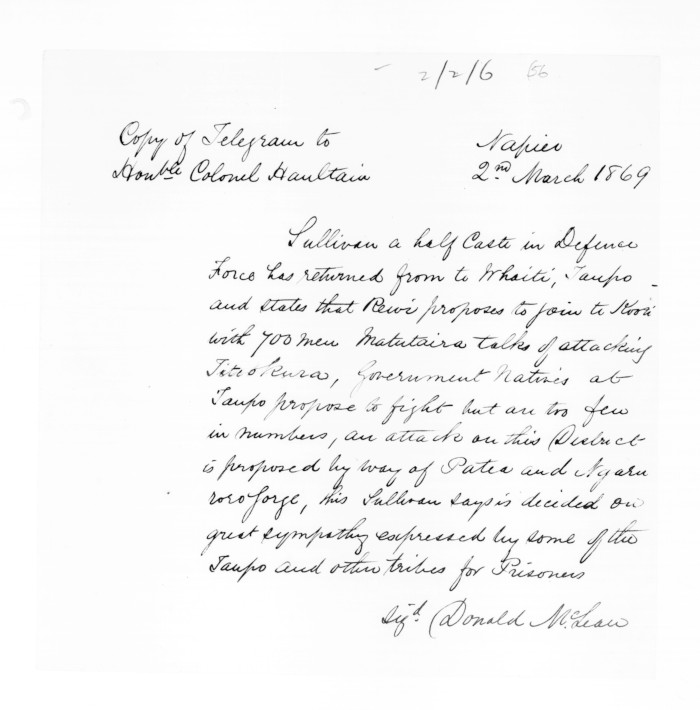 2/2/6 56
Copy of Telegram to
Honble Colonel Haultain
Napier
2nd March 1869
Sullivan a half Caste in Defence
Force has returned from te Whaiti, Taupo -
and states that Rewi proposes to join te Kooti
with 700 men Matutaira talks of attacking
Titiokura, Government Natives at
Taupo propose to fight but are too few
in numbers, an attack on this District
is proposed by way of Patea and Ngaru
roro Gorge, this Sullivan says is decided on
great sympathy expressed by some of the
Taupo and other tribes for Prisoners
sigd. (Donald McLean